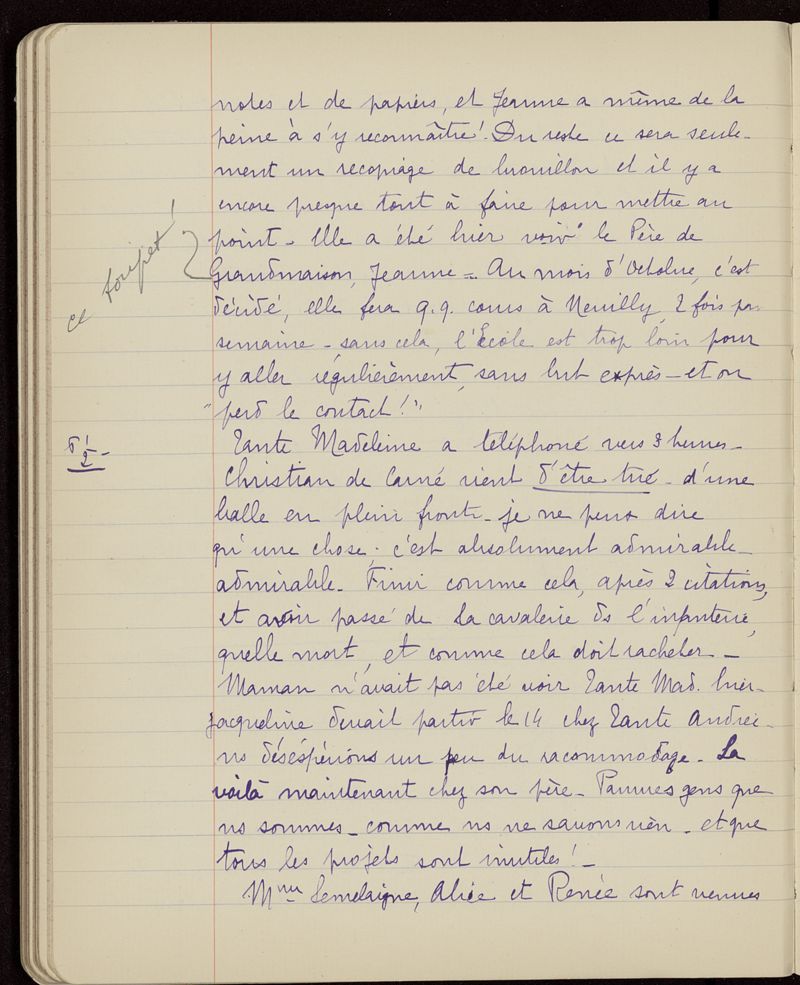 notes et de papiers, et Jeanne a même de la
peine à s'y reconnaître! Du reste ce sera seule-
ment un recopiage de brouillon et il y a
encore presque tout à faire pour mettre au
point - Elle a été hier voir le Père de
ce toupet!
Grandmaison, Jeanne - Au mois d'Octobre, c'est
décidé, elle fera q.q. cours à Neuilly, 2 fois par
semaine - sans cela, l'École est trop loin pour
y aller régulièrement, sans but exprès - et on
"perd le contact!"
5 1/2 -
Tante Madeleine a téléphoné vers 3 heures -
Christian de Carné vient d'être tué - d'une
balle en plein front - je ne peux dire
qu'une chose : c'est absolument admirable -
admirable - Finir comme cela, après 2 citations,
et avoir passé de la cavalerie ds l'infanterie,
quelle mort, et comme cela doit racheter -
Maman n'avait pas été voir Tante Mad. hier -
Jacqueline devait partir le 14 chez Tante Andrée -
ns désespérions un peu du racommodage - La
voilà maintenant chez son père - Pauvres gens que
ns sommes - comme ns ne savons rien - et que
tous les projets sont inutiles! -
Mmes Semelaigne, Alice et Renée sont venues